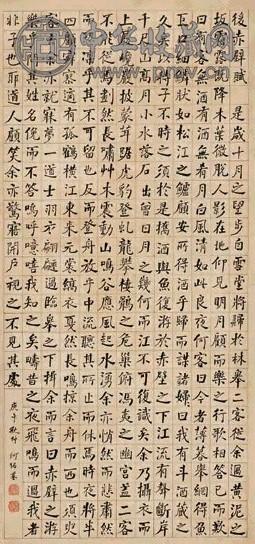 後赤壁賦 是歲十月之望步自雪堂將歸於林皋二客從余過黃泥之
坂霜露既降木葉微脫人影在地仰見明月顧而樂之行歌相答已而歎
曰有客無酒有酒無肴月白風清如此良夜何客曰今者薄暮舉網得魚
巨口細鱗狀如松江之鱸顧安所得酒乎歸而謀諸婦曰我有斗酒藏之
久矣以待子不時之須於是攜酒與魚復遊於赤壁之下江流有聲斷岸
千山高月小水落石出曾日月之幾何而江不可復識矣余乃攝衣而
上履巉巖披蒙茸踞虎豹登虬龍攀棲鶻之危巢俯馮夷之幽宮蓋二客
不能從焉劃然長嘯草木震動山鳴谷應風起水涌余亦悄然而悲肅然
而恐凜乎其不可留也反而登舟放乎中流聽其所止而休焉時夜將半
四顧寂寥適有孤鶴橫江東來元裳縞衣戛然長鳴掠余舟而西也須臾
客去余亦就寐夢一道士羽衣翩躚過臨皋之下揖余而言曰赤壁之遊
樂乎問其姓名俛而不答嗚呼噫嘻我知之矣疇昔之夜飛鳴而過我者
非子也耶道人顧笑余亦驚寤開戶視之不見其處
庚午秋仲 何紹基
中华收藏网